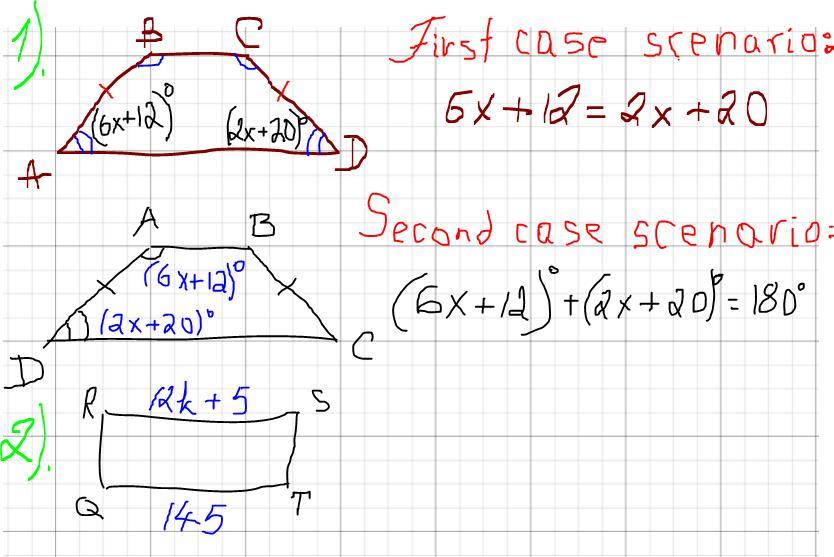 1).
B C
(6x+12)° (2x+20)°
A D
First case scenario:
6x+12=2x+20
A B
(6x+12)°
(2x+20)°
D C
Second case scenario:
(6x+12)°+(2x+20)°=180°
2).
R 12k+5 S
Q 145 T